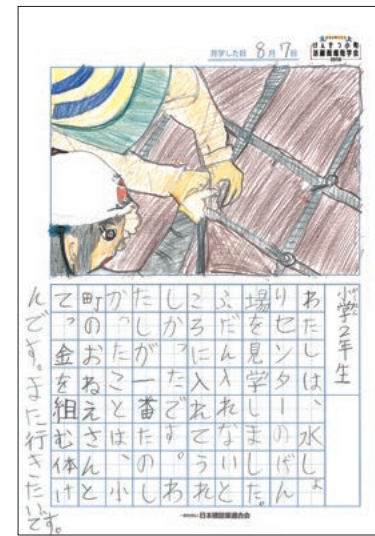 見学した日 8月7日
けんせつ小町
活躍現場見学会
小学2年生
わたしは、水しょ
りセンターのげん
場を見学しました。
ふだん入れないと
ころに入れてうれ
しかったです。わ
たしが一番たのし
かったことは、小
町のおねえさんと
てっ金を組む体け
んです。また行きたい
です。
一般社団法人日本建設業連合会